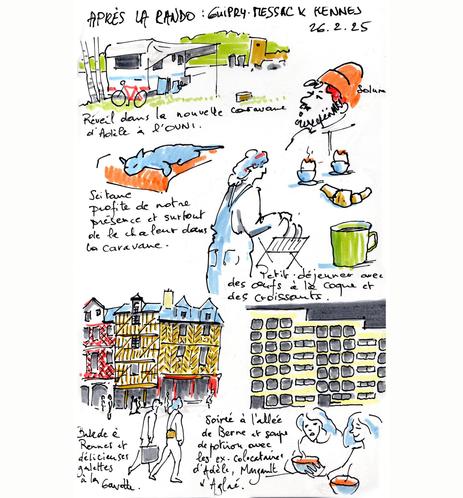 APRÈS LA RANDO : GUIPRY-MESSAC & RENNES
26.2.25
Solum
Réveil dans la nouvelle caravane
d'Adèle à l'OVNI.
Seitane
profite de notre
présence et surtout
de la chaleur dans
la caravane.
Petit-déjeuner avec
des œufs à la coque et
des croissants.
Balade à
Rennes et
délicieuses
galettes
à la
Soirée à l'allée
de Berne et soupe
de potiron avec
les ex-colocataires
d'Adèle, Margault
d'Aglaé.